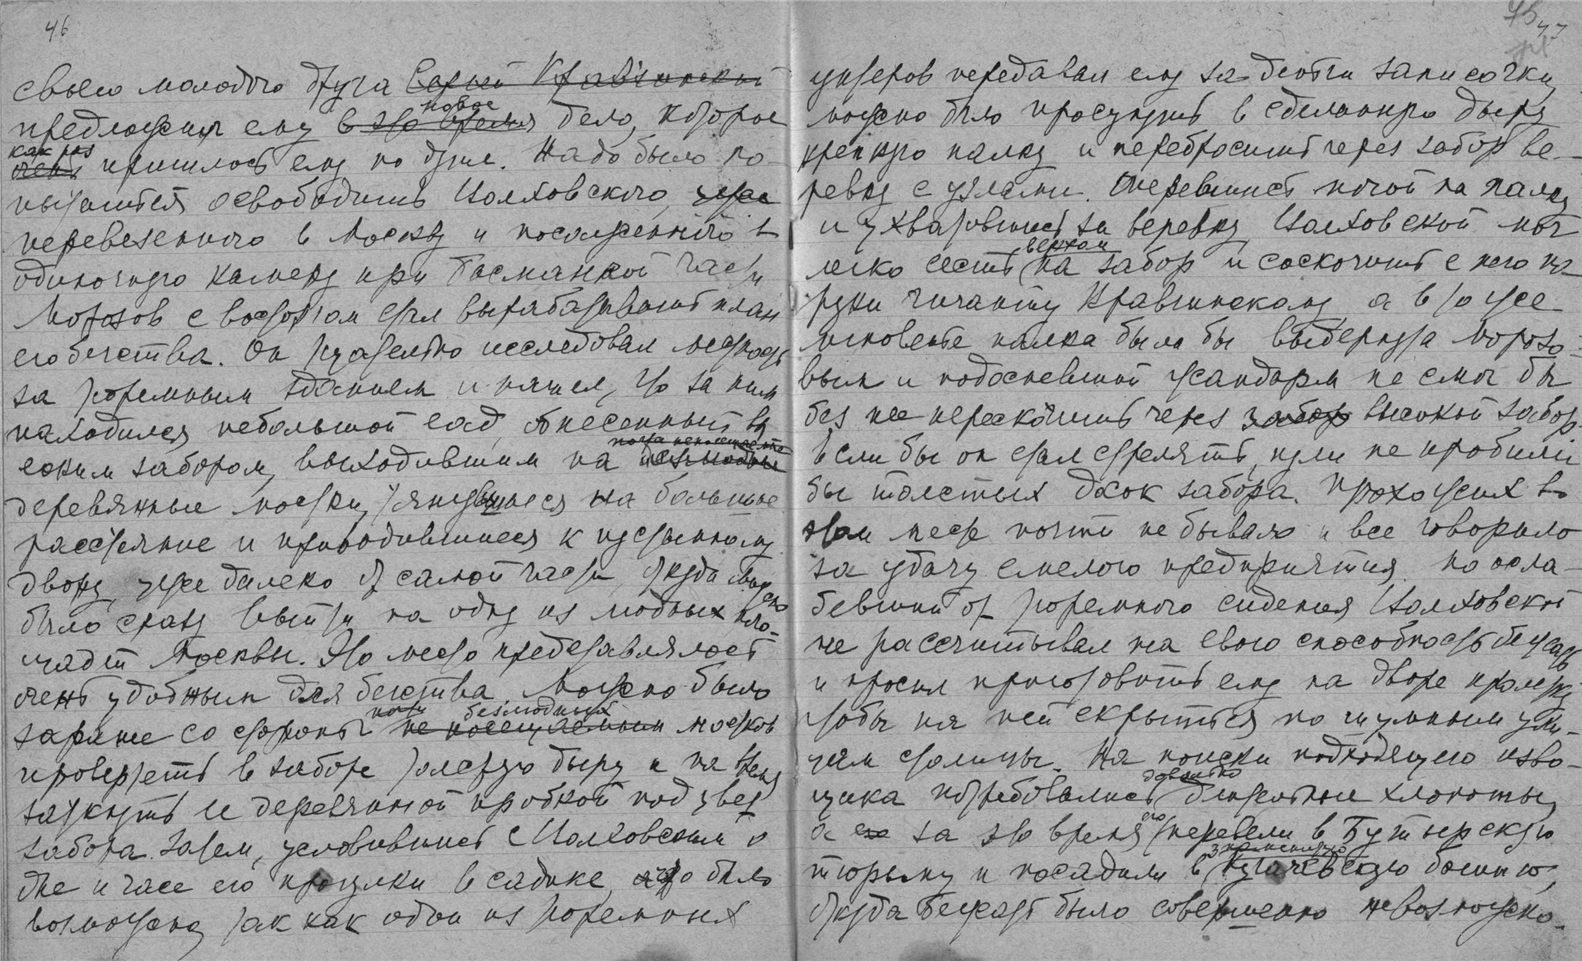 46
своего молодого друга Сергей Кравчинский
новое
предложил ему в это время дело, которое
как раз
очень пришлось ему по душе. Надо было по-
пытаться освободить Волховского, уже
перевезенного в Москву и посаженного в
одиночную камеру при Басманной части
Морозов с восторгом стал вырабатывать план
его бегства. Он тщательно исследовал местность
за тюремным зданием и нашел, что за ним
находился небольшой сад, обнесенный вы-
соким забором, выходившим на
деревянные мостки, тянувшиеся на большое
расстояние и приводившиеся к пустынному
двору, уже далеко от самой части, откуда можно
было сразу выйти на одну из людных пло-
щадей Москвы. Это место представлялось
очень удобным для бегства. Можно было
почти безлюдных
заранее со стороны не посещаемых мостков
провертеть в заборе толстую дыру и на время
заткнуть ее деревянной пробкой под цвет
забора. Затем, условившись с Волховским о
дне и часе его прогулки в садике, а это было
возможно, так как один из тюремных
47
унтеров передавал ему за деньги записочки,
можно было просунуть в сделанную дыру
крепкую палку и перебросить через забор ве-
ревку с узлами. Опершись ногой на палку
и ухватившись за веревку, Волховской мог
верхом
легко сесть на забор и соскочить с него на
руки гиганту Кравчинскому, а в то же
мгновенье палка была бы выдернута Морозо-
вым и подоспевший жандарм не смог бы
без нее перескочить через забор высокий забор.
Если бы он стал стрелять, пули не пробили
бы толстых досок забора. Прохожих в
этом месте почти не бывало и все говорило
за удачу смелого предприятия. Но осла-
бевший от тюремного сидения Волховской
не рассчитывал на свою способность бежать
и просил приготовить ему на дворе пролетку
чтобы на ней скрыться по шумным ули-
цам столицы. На поиски подходящего изво-
довольно
щика потребовались длительные хлопоты,
его
а его за это время перевели в Бутырскую
знаменитую
тюрьму и посадили в Пугачевскую башню,
откуда бежать было совершенно невозможно.